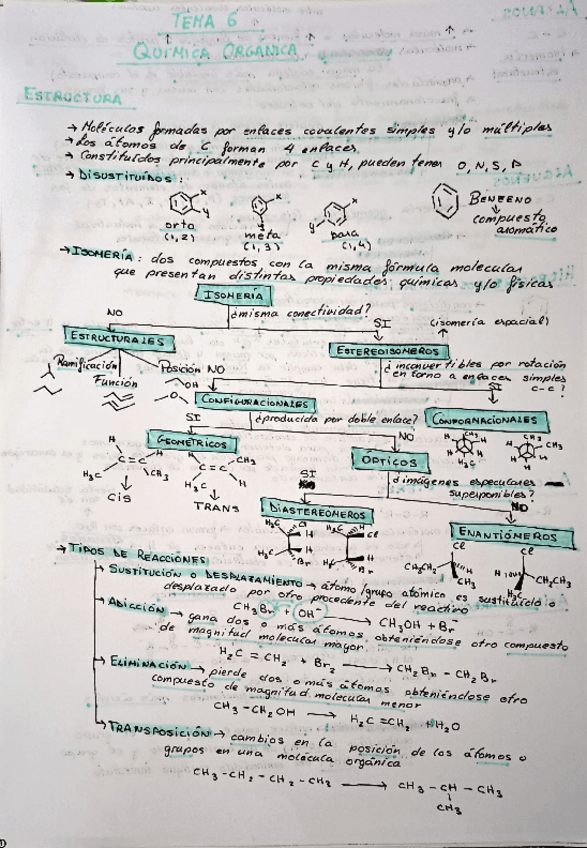 TEMA 6
QUÍMICA ORGÁNICA
ESTRUCTURA
→ Moléculas formadas por enlaces covalentes simples y/o múltiples
→ Los átomos de C forman 4 enlaces
→ Constituídos principalmente por C y H, pueden tener O, N, S, P
→ DISUSTITUÍDOS:
x
y
orto
(1,2)
x
y
meta
(1,3)
x
y
para
(1,4)
BENCENO
compuesto
aromático
→ ISOMERÍA: dos compuestos con la misma fórmula molecular
que presentan distintas propiedades químicas y/o físicas
ISOMERÍA
¿misma conectividad?
NO
SI
(isomería espacial)
ESTRUCTURALES
ESTEREOISÓMEROS
Ramificación
Función
Posición
OH
O
¿inconvertibles por rotación
en torno a enlaces simples
C-C?
NO
SI
CONFIGURACIONALES
CONFORMACIONALES
¿producida por doble enlace?
SI
NO
GEOMÉTRICOS
ÓPTICOS
H H
C=C
H3C CH3
CIS
H CH3
C=C
H3C H
TRANS
¿imágenes especulares
superponibles?
SI
NO
DIASTEREÓMEROS
ENANTIÓMEROS
Cl
CH3CH2
H
CH3
Cl
H
H3C
CH2CH3
→ TIPOS DE REACCIONES
→ SUSTITUCIÓN O DESPLAZAMIENTO → átomo/grupo atómico es sustituído o
desplazado por otro procedente del reactivo
CH3Br + OH⁻ → CH3OH + Br⁻
→ ADICCIÓN → gana dos o más átomos, obteniéndose otro compuesto
de magnitud molecular mayor
H2C = CH2 + Br2 → CH2Br - CH2Br
→ ELIMINACIÓN → pierde dos o más átomos obteniéndose otro
compuesto de magnitud molecular menor
CH3-CH2OH → H2C=CH2 + H2O
→ TRANSPOSICIÓN → cambios en la posición de los átomos o
grupos en una molécula orgánica
CH3-CH2-CH2-CH3 → CH3-CH-CH3
CH3